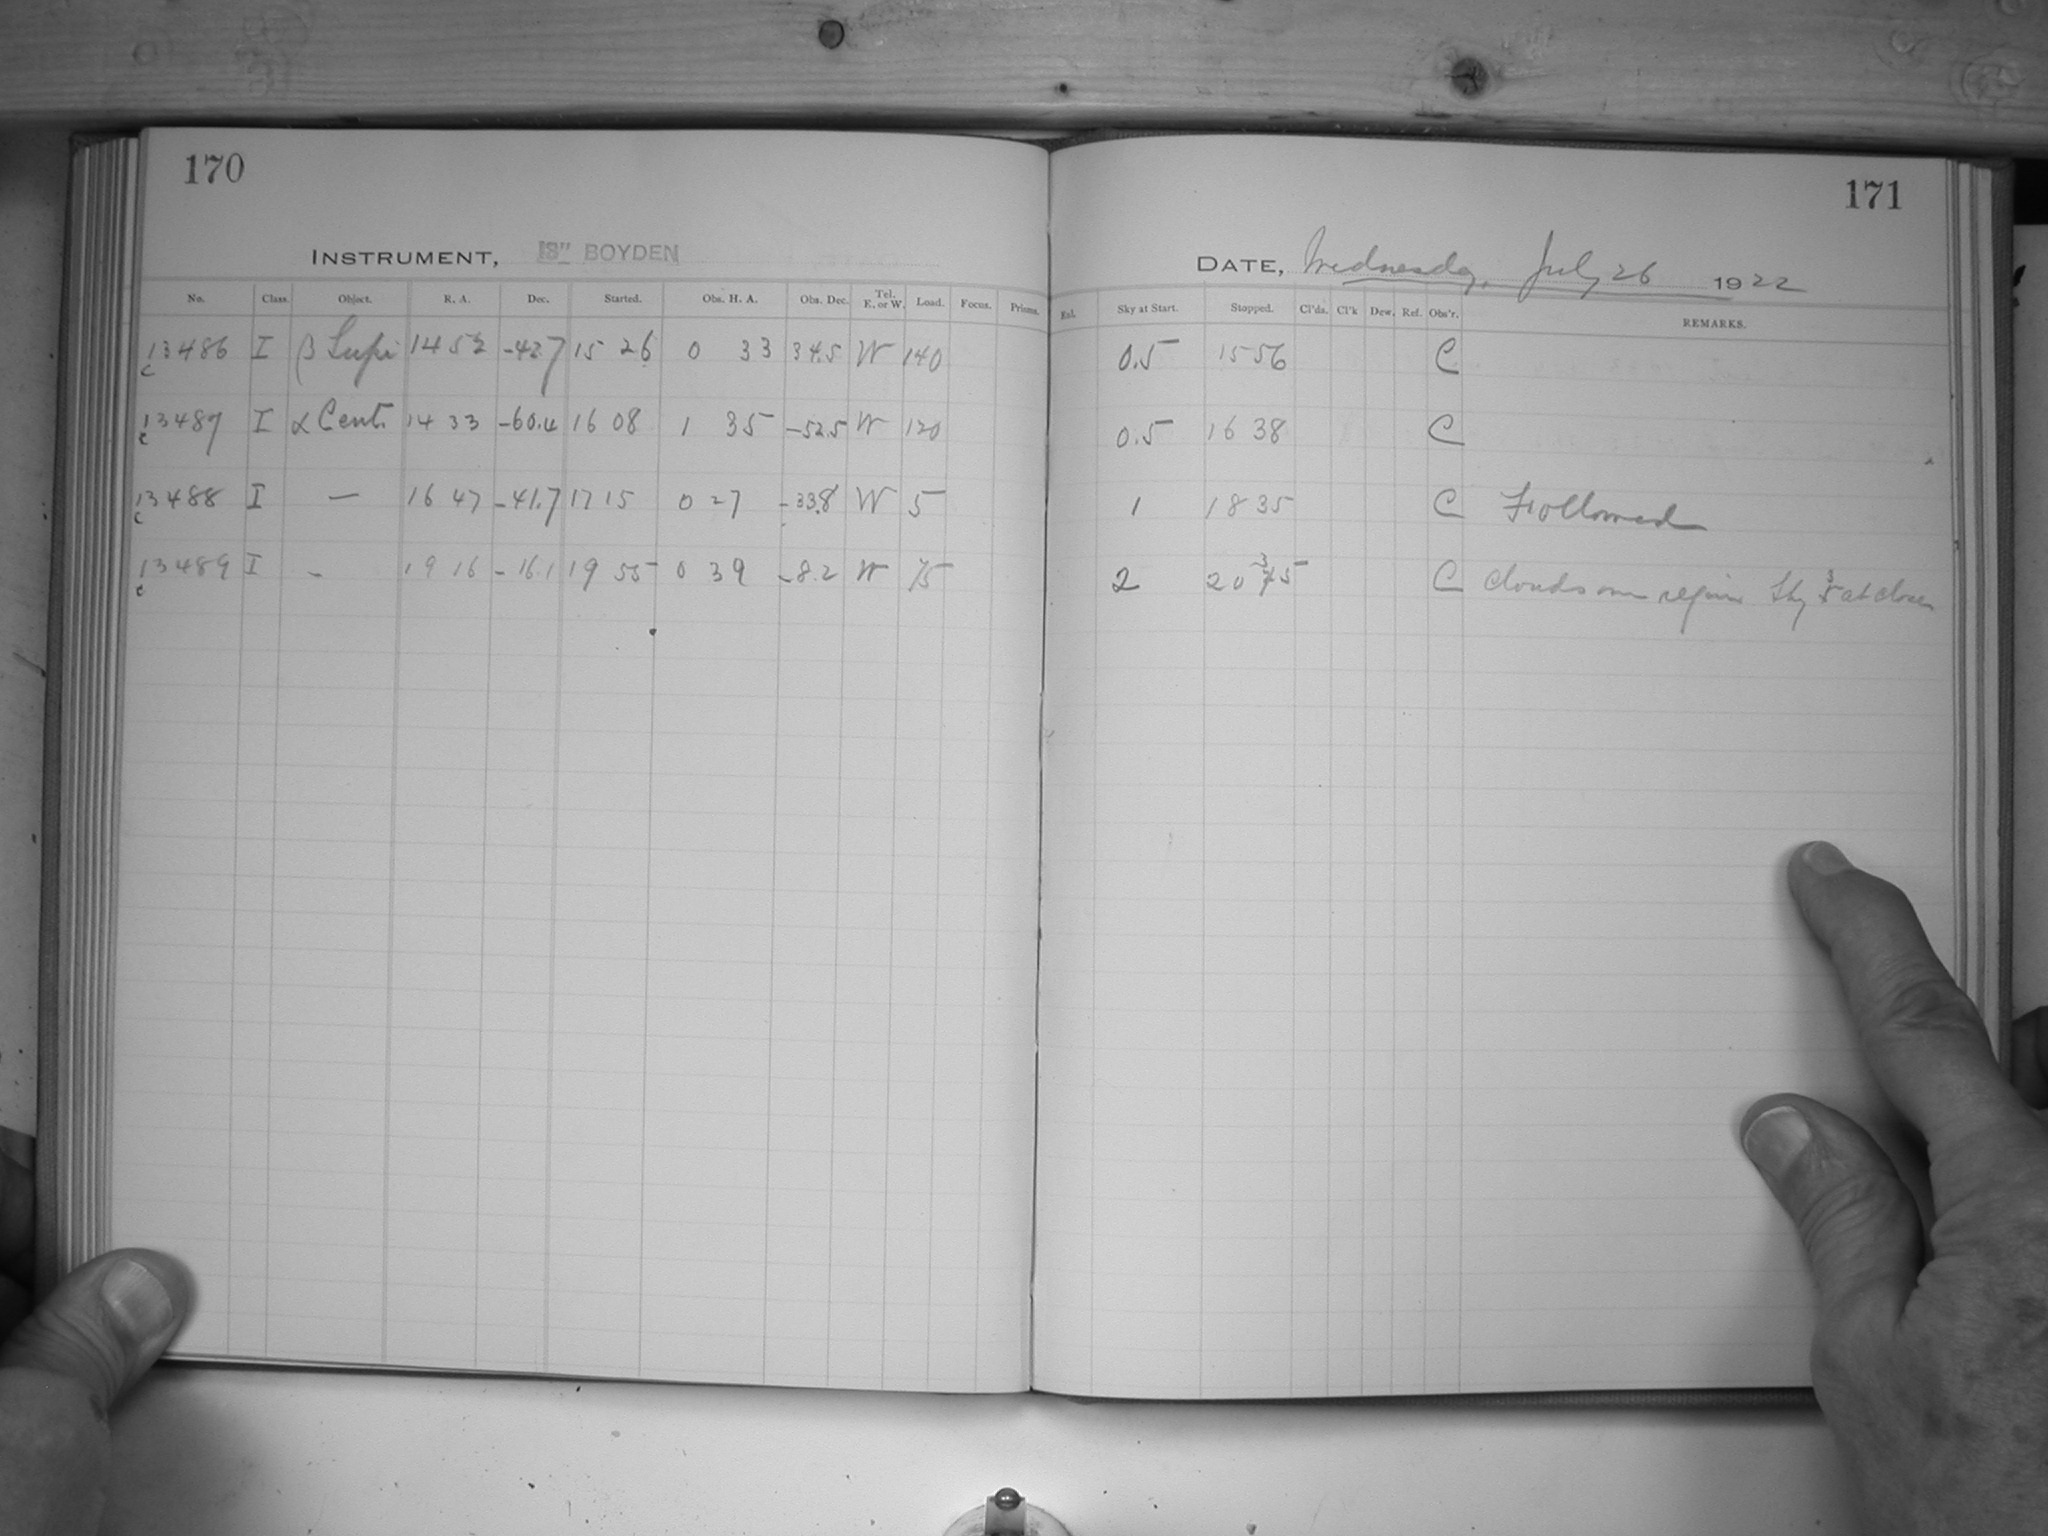 170
INSTRUMENT, 13" BOYDEN
No. Class. Object. R. A. Dec. Started. Obs. H. A. Obs. Dec. Tel. E. or W. Load. Focus. Prisms.
13486 I β Lupi 14 52 -42.7 15 26 0 33 34.5 W 140
c
13487 I α Cent. 14 33 -60.4 16 08 1 35 -52.5 W 120
c
13488 I — 16 47 -41.7 17 15 0 27 -33.8 W 5
c
13489 I - 19 16 -16.1 19 55 0 39 -8.2 W 75
c
171
DATE, Wednesday, July 26 1922
Exl. Sky at Start. Stopped. Cl'ds. Cl'k Dew. Ref. Obs'r. REMARKS.
0.5 15 56 C
0.5 16 38 C
1 18 35 C Followed
2 20 35 C Clouds over region Sky 3 at close